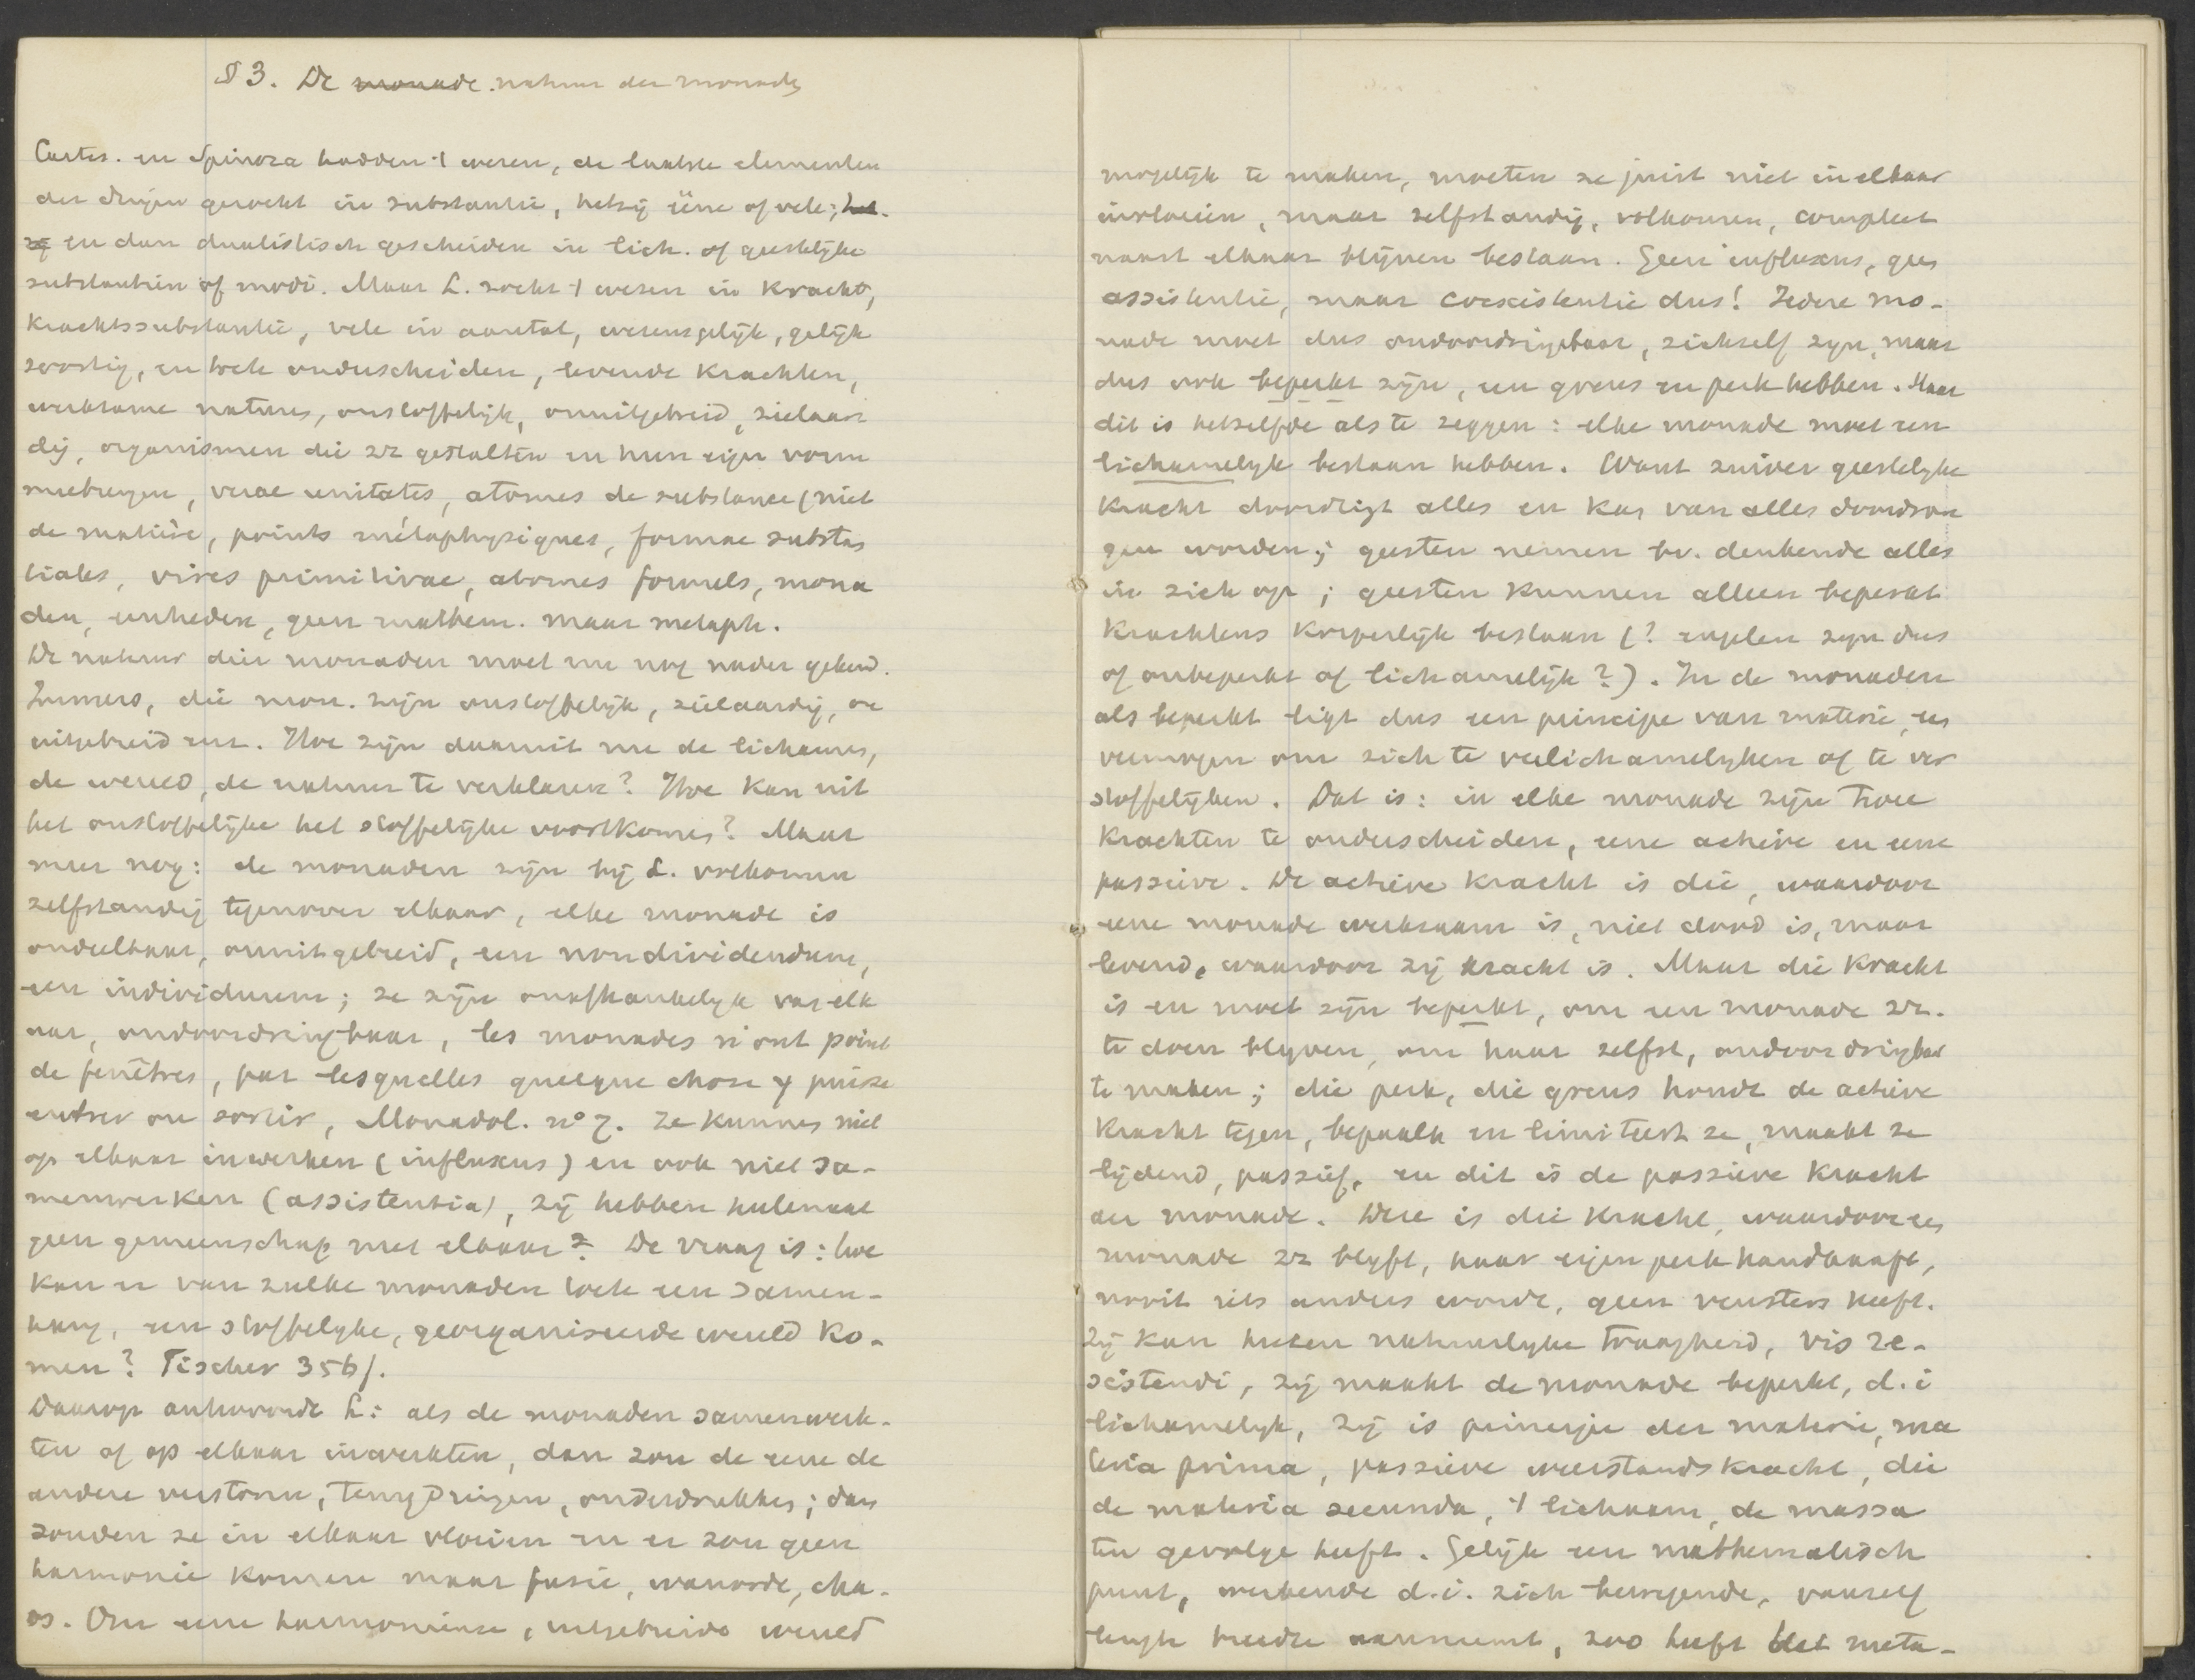 § 3. De monade. natuur der monade
Cartes. en Spinoza hadden 't wezen, de laatste elementen
der dingen gezocht in substantie, hetzij ééne of vele; het-
zij en dan dualistisch gescheiden in lich. of geestelijke
substantien of modi. Maar L. zocht 't wezen in Kracht,
Krachtssubstantie, vele in aantal, wezensgelijk, gelijk
soortig, en toch onderscheiden, levende Krachten,
werkzame natures, onstoffelijk, onuitgebreid, zielaar
dig, organismen die ze gestalten en hun eigen vorm
meebrengen, verae unitates, atomes de substance (niet
de matière, points métaphysiques, formae substan
tiales, vires primitivae, atomes formels, mona
den, eenheden, geen mathem. maar metaph.
De natuur dier monaden moet nu nog nader gekend.
Immers, die mon. zijn onstoffelijk, zielaardig, on
uitgebreid enz. Hoe zijn daaruit nu de lichamen,
de wereld, de natuur te verklaren? Hoe kan uit
het onstoffelijke het stoffelijke voortkomen? Maar
meer nog: de monaden zijn bij L. volkomen
zelfstandig tegenover elkaar, elke monade is
ondeelbaar, onuitgebreid, een non dividendum,
een individuum; ze zijn onafhankelyk van elk
aar, ondoordringbaar, les monades n'ont point
de fenêtres, par lesquelles quelque chose y puisse
entrer ou sortir, Monadol. n° 7. Ze kunnen niet
op elkaar inwerken (influxus) en ook niet sa-
menwerken (assistentia), zij hebben heelemaal
geen gemeenschap met elkaar? De vraag is: hoe
kan er van zulke monaden toch een samen-
hang, een stoffelyke, georganiseerde wereld ko-
men? Fischer 356/.
Daarop antwoordt L: als de monaden samenwerk-
ten of op elkaar inwerkten, dan zou de eene de
andere verstoren, terugdringen, onderdrukken; dan
zouden ze in elkaar vloeien en er zou geen
harmonie komen maar fusie, wanorde, cha-
os. Om eene harmonieuze, uitgebreide wereld
mogelijk te maken, moeten ze juist niet in elkaar
invloeien, maar zelfstandig, volkomen, compleet
naast elkaar blijven bestaan. Geen influxus, geen
assistentie, maar coexistentie dus! Iedere mo-
nade moet dus ondoordringbaar, zichzelf zyn, maar
dus ook beperkt zijn, een grens en perk hebben. Maar
dit is hetzelfde als te zeggen: elke monade moet een
lichamelyk bestaan hebben. Want zuiver geestelyke
Kracht doordringt alles en kan van alles doordron
gen worden; geesten nemen bv. denkende alles
in zich op; geesten kunnen alleen beperkt
krachtens korperlijk bestaan (? engelen zyn dus
of onbeperkt of lichamelijk?). In de monaden
als beperkt ligt dus een principe van materie, een
vermogen om zich te verlichamelyken of te ver
stoffelijken. Dat is: in elke monade zijn twee
Krachten te onderscheiden, eene actieve en eene
passieve. De actieve kracht is die, waardoor
eene monade werkzaam is, niet dood is, maar
levend, waardoor zij kracht is. Maar die kracht
is en moet zijn beperkt, om een monade ze.
te doen blyven, om haar zelfst, ondoordringbaar
te maken; die perk, die grens houdt de actieve
Kracht tegen, bepaalt en limiteert ze, maakt ze
lijdend, passief, en dit is de passieve kracht
der monade. Deze is die kracht, waardoor een
monade ze blyft, haar eigen perk handhaaft,
nooit iets anders wordt, geen vensters heeft.
Zij kan heeten natuurlyke traagheid, vis re-
sistendi, zij maakt de monade beperkt, d.i
lichamelyk, zij is principe der materie, ma
teria prima, passieve weerstandskracht, die
de materia secunda, 't lichaam, de massa
ten gevolge heeft. Gelijk een mathematisch
punt, werkende d.i. zich bewegende, vanzelf
lengte breedte aanneemt, zoo heeft het meta-